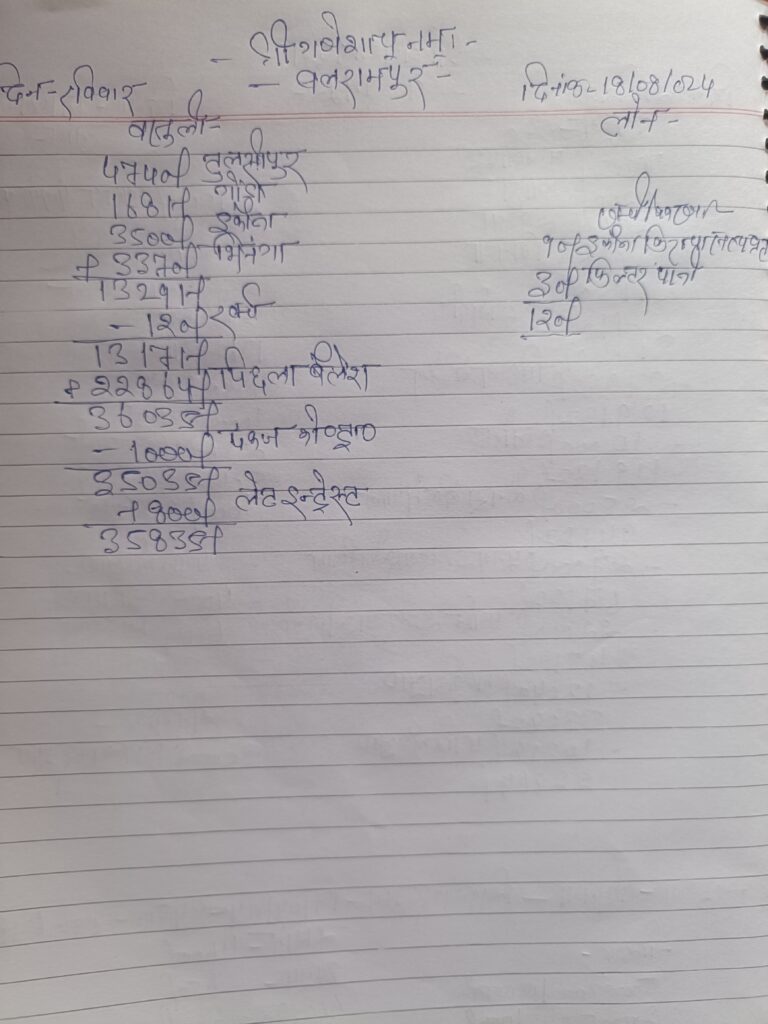 - श्री गणेशाय नमः -
- बलरामपुर -
दिन-रविवार
दिनांक-18/08/024
वसुली-
लोन-
4740/ तुलसीपुर
1681/ गोंडा
3500/ इकौना
+ 3370/ भिनगा
13291/
- 120/ खर्च
13171/
+ 22864/ पिछला बैलेंस
36035/
- 1000/ पंकज
35035/
+ 800/ लेट इन्ट्रेस्ट
35835/
खर्चा विवरण
90/ इकौना किराया
30/ फिल्टर पानी
120/